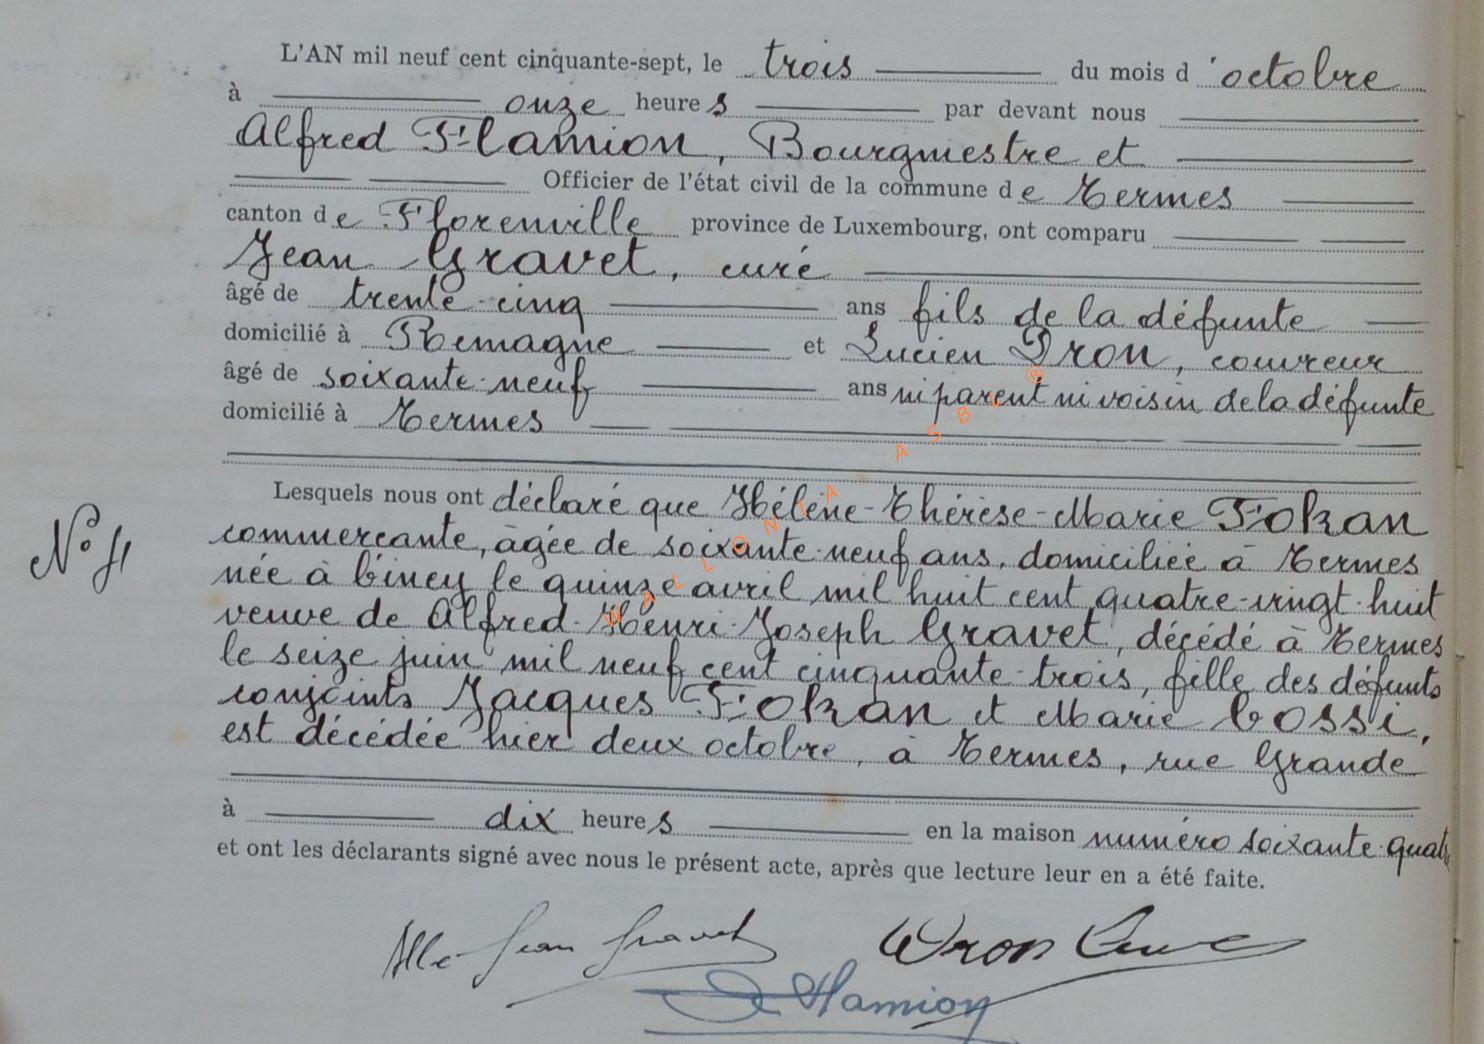 L'AN mil neuf cent cinquante-sept, le trois du mois d'octobre
à onze heures par devant nous
Alfred Flamion, Bourgmestre et
Officier de l'état civil de la commune de Termes
canton de Florenville province de Luxembourg, ont comparu
Jean Gravet, curé
âgé de trente-cinq ans fils de la défunte
domicilié à Remagne et Lucien Dron, couvreur
âgé de soixante-neuf ans ni parent ni voisin de la défunte
domicilié à Termes
Lesquels nous ont déclaré que Hélène-Thérèse-Marie Fokan
N° 4
commerçante, âgée de soixante-neuf ans, domiciliée à Termes
née à Ciney le quinze avril mil huit cent quatre-vingt-huit
veuve de Alfred-Henri-Joseph Gravet, décédé à Termes
le seize juin mil neuf cent cinquante-trois, fille des défunts
conjoints Jacques Fokan et Marie Cossi,
est décédée hier deux octobre, à Termes, rue Grande
à dix heures en la maison numéro soixante-quat
et ont les déclarants signé avec nous le présent acte, après que lecture leur en a été faite.
Jean Gravet
Dron
Flamion
WALLONIA ASBL ®